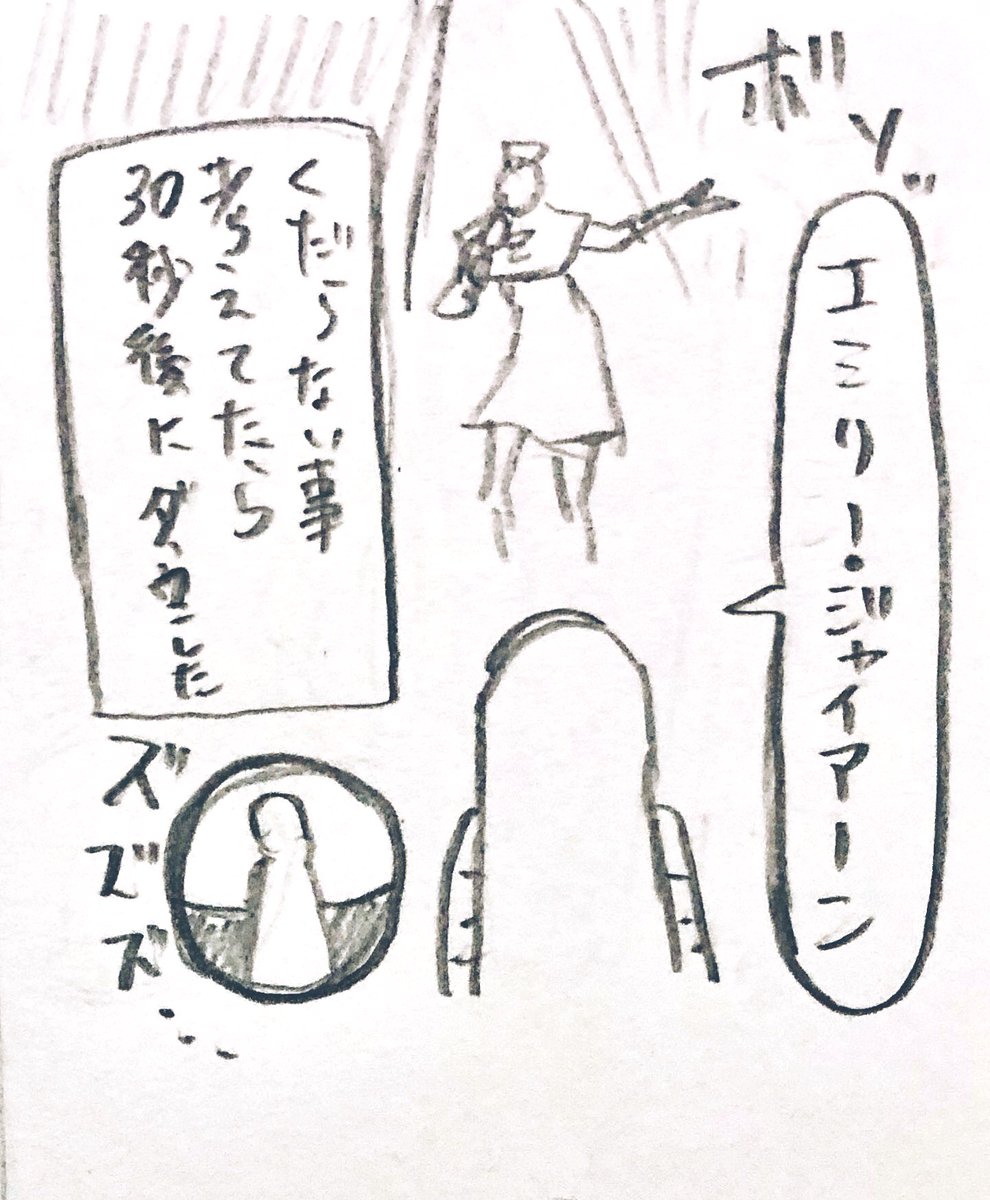 ボソッ
エミリー・ジャイアーン
くだらない事
考えてたら
30秒後にダウンした
ズズズ…